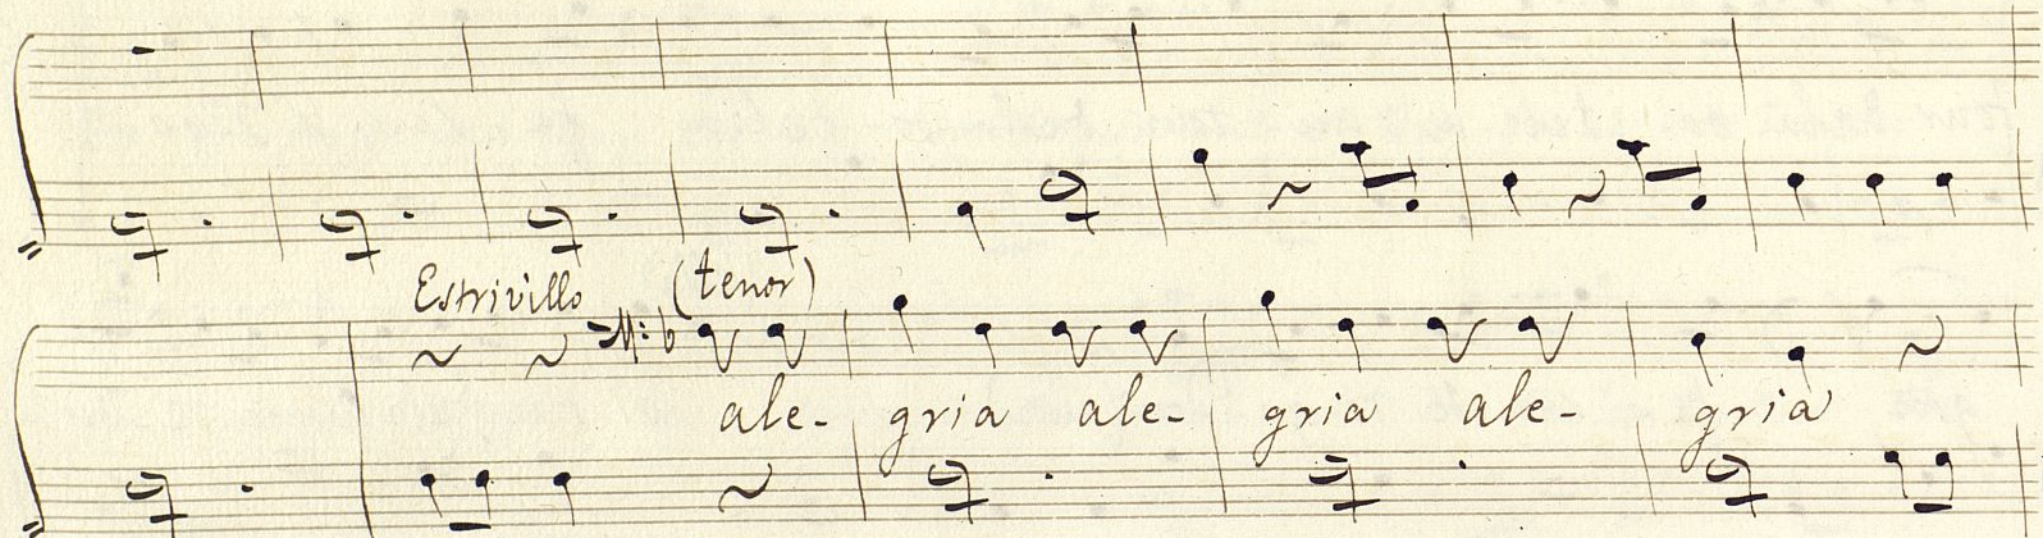 Estrivillo (tenor)
ale- gria ale- gria ale- gria